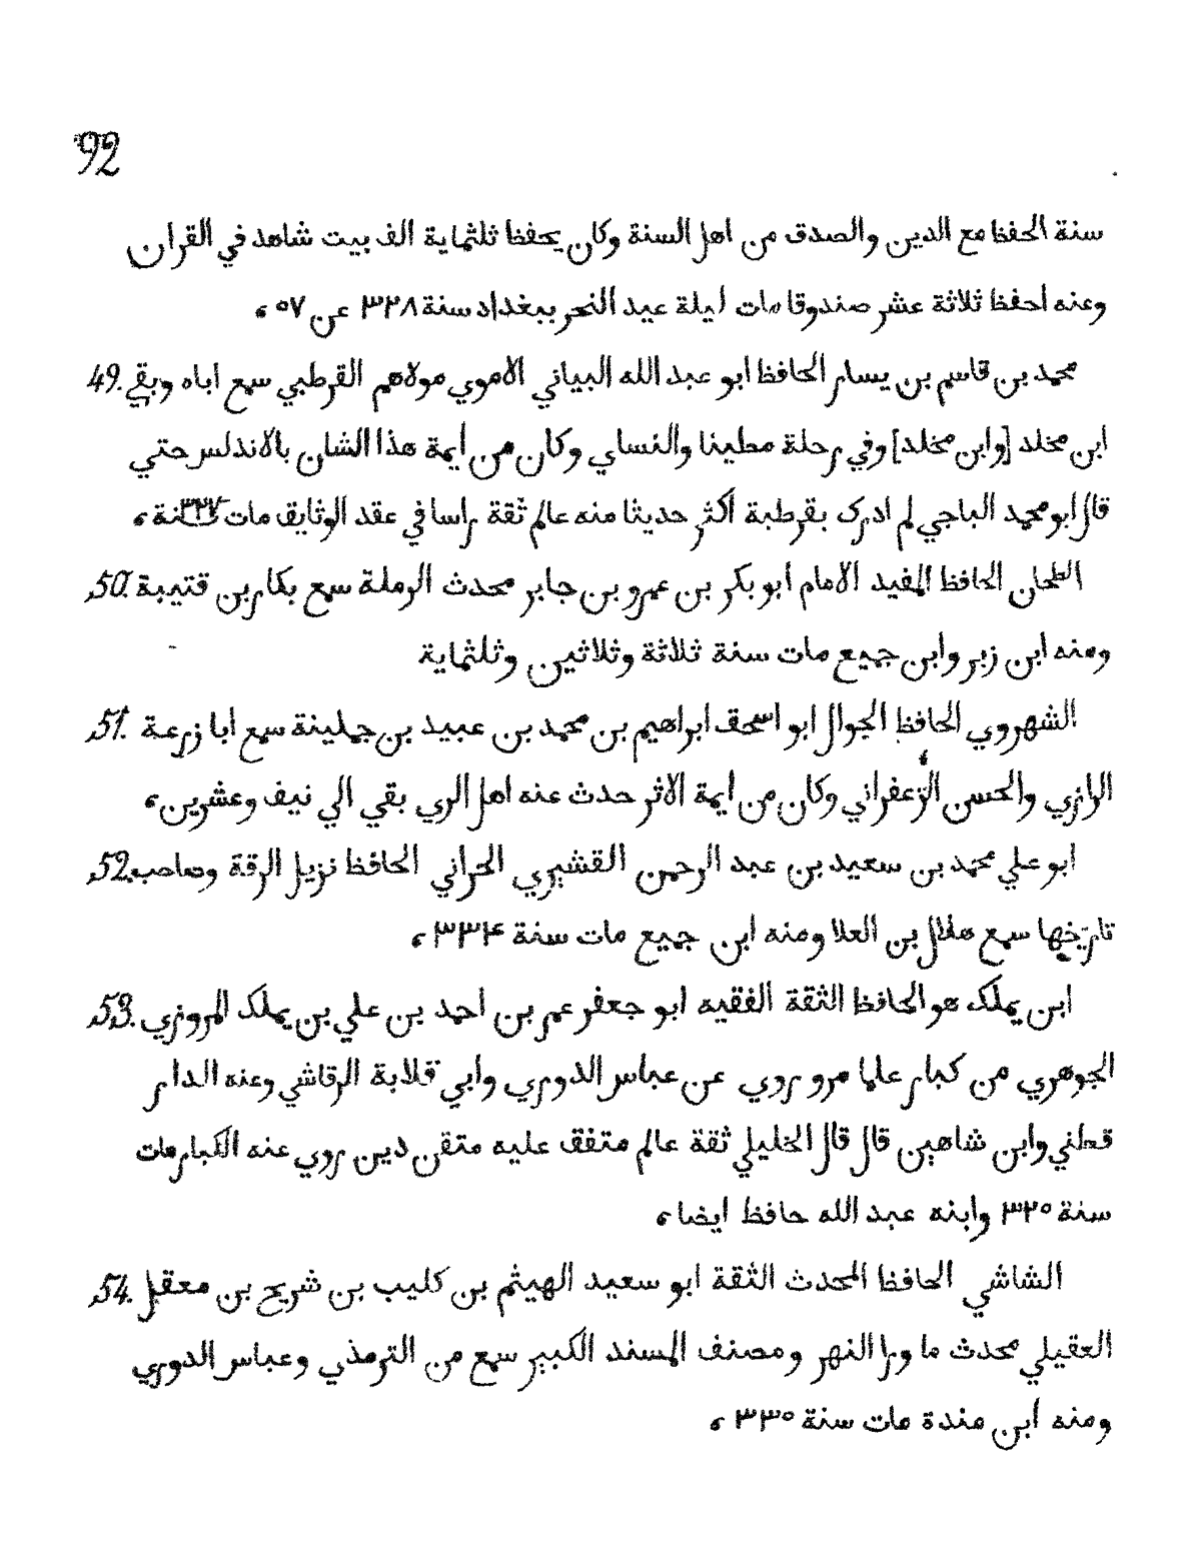 92
سنة الحفظ مع الدين والصدق من اهل السنة وكان يحفظ ثلثماية الف بيت شاهد في القران
وعنه احفظ ثلاثة عشر صندوقا مات ليلة عيد النحر ببغداد سنة ٣٢٨ عن ٥٧ ،
49. محمد بن قاسم بن يسار الحافظ ابو عبد الله البياني الاموي مولاهم القرطبي سمع اباه وبقي
ابن مخلد [وابن مخلد] وفي رحلة مطينا والنساي وكان من أيمة هذا الشان بالاندلس حتي
قال ابو محمد الباجي لم ادرك بقرطبة أكثر حديثا منه عالم ثقة راسا في عقد الوثايق مات سنة ٣٢٧ ،
50. الطحان الحافظ المفيد الامام ابو بكر بن عمرو بن جابر محدث الرملة سمع بكار بن قتيبة
ومنه ابن زبر وابن جميع مات سنة ثلاثة وثلاثين وثلثماية
51. الشهروي الحافظ الجوال ابو اسحق ابراهيم بن محمد بن عبيد بن جهلينة سمع ابا زرعة
الرازي والحسن الزعفراني وكان من ايمة الاثر حدث عنه اهل الري بقي الي نيف وعشرين ،
52. ابو علي محمد بن سعيد بن عبد الرحمن القشيري الحراني الحافظ نزيل الرقة وصاحب
تاريخها سمع هلال بن العلا ومنه ابن جميع مات سنة ٣٣٤ ،
53. ابن يملك هو الحافظ الثقة الفقيه ابو جعفر عمر بن احمد بن علي بن يملك المروزي
الجوهري من كبار علما مرو روي عن عباس الدوري وابي قلابة الرقاشي وعنه الدار
قطني وابن شاهين قال قال الخليلي ثقة عالم متفق عليه متقن دين روي عنه الكبار مات
سنة ٣٢٥ وابنه عبد الله حافظ ايضا ،
54. الشاشي الحافظ المحدث الثقة ابو سعيد الهيثم بن كليب بن شريح بن معقل
العقيلي محدث ما ورا النهر ومصنف المسند الكبير سمع من الترمذي وعباس الدوري
ومنه ابن مندة مات سنة ٣٣٥ ،